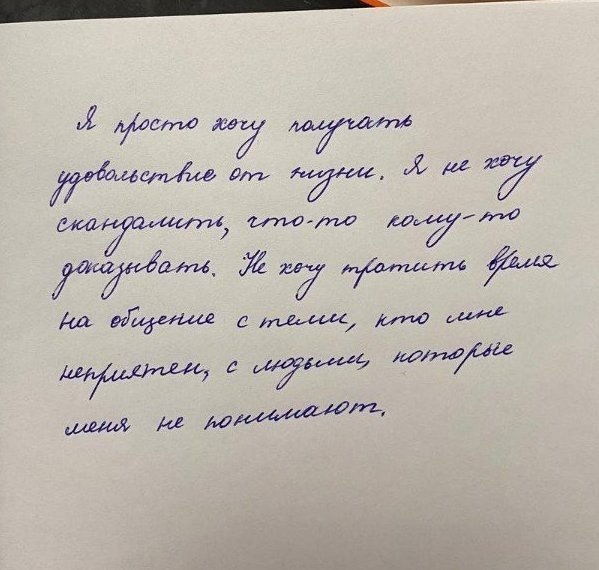 Я просто хочу получать
удовольствие от жизни. Я не хочу
скандалить, что-то кому-то
доказывать. Не хочу тратить время
на общение с теми, кто мне
неприятен, с людьми, которые
меня не понимают.